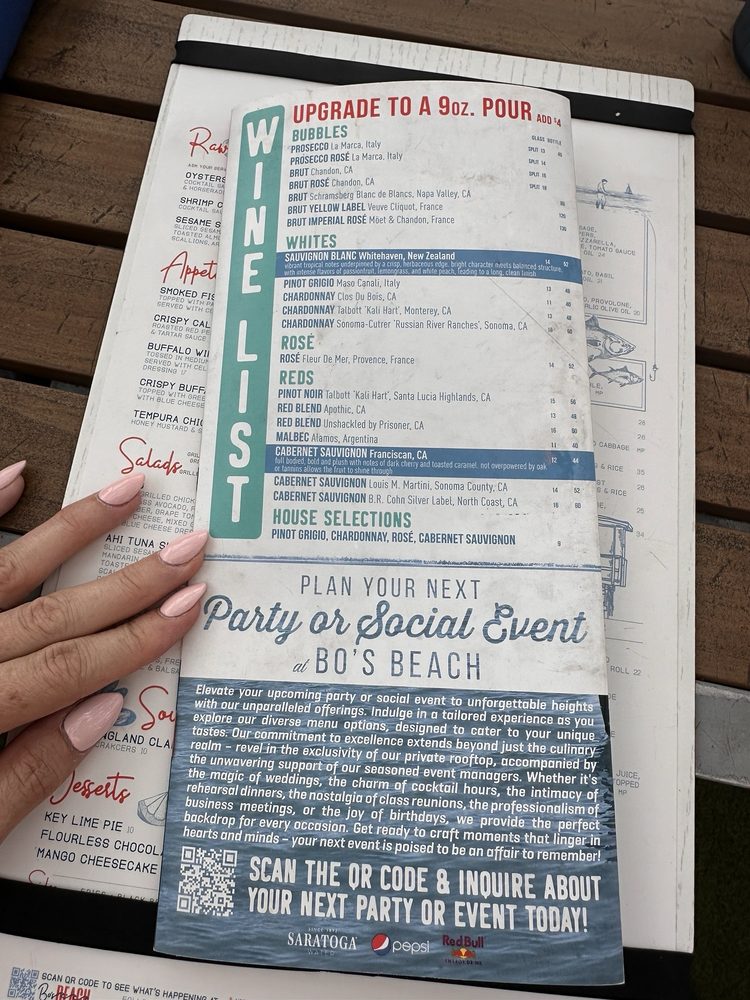 UPGRADE TO A 9oz. POUR ADD $4
WINE LIST
GLASS BOTTLE
BUBBLES
PROSECCO La Marca, Italy SPLIT 13 45
PROSECCO ROSÉ La Marca, Italy SPLIT 14
BRUT Chandon, CA SPLIT 18
BRUT ROSÉ Chandon, CA SPLIT 18
BRUT Schramsberg Blanc de Blancs, Napa Valley, CA
BRUT YELLOW LABEL Veuve Cliquot, France
BRUT IMPERIAL ROSÉ Möet & Chandon, France
WHITES
SAUVIGNON BLANC Whitehaven, New Zealand 14 52
vibrant tropical notes underpinned by a crisp, herbaceous edge. bright character meets balanced structure,
with intense flavors of passionfruit, lemongrass, and white peach, leading to a long, clean finish
PINOT GRIGIO Maso Canali, Italy 13 48
CHARDONNAY Clos Du Bois, CA 11 40
CHARDONNAY Talbott 'Kali Hart', Monterey, CA 13 48
CHARDONNAY Sonoma-Cutrer 'Russian River Ranches', Sonoma, CA 16 60
ROSÉ
ROSÉ Fleur De Mer, Provence, France 14 52
REDS
PINOT NOIR Talbott 'Kali Hart', Santa Lucia Highlands, CA 15 56
RED BLEND Apothic, CA 13 48
RED BLEND Unshackled by Prisoner, CA 16 60
MALBEC Alamos, Argentina 11 40
CABERNET SAUVIGNON Franciscan, CA 12 44
full bodied, bold and plush with notes of dark cherry and toasted caramel. not overpowered by oak
or tannins allows the fruit to shine through
CABERNET SAUVIGNON Louis M. Martini, Sonoma County, CA 14 52
CABERNET SAUVIGNON B.R. Cohn Silver Label, North Coast, CA 16 60
HOUSE SELECTIONS
PINOT GRIGIO, CHARDONNAY, ROSÉ, CABERNET SAUVIGNON 9
PLAN YOUR NEXT
Party or Social Event
at BO'S BEACH
Elevate your upcoming party or social event to unforgettable heights
with our unparalleled offerings. Indulge in a tailored experience as you
explore our diverse menu options, designed to cater to your unique
tastes. Our commitment to excellence extends beyond just the culinary
realm – revel in the exclusivity of our private rooftop, accompanied by
the unwavering support of our seasoned event managers. Whether it's
the magic of weddings, the charm of cocktail hours, the intimacy of
rehearsal dinners, the nostalgia of class reunions, the professionalism of
business meetings, or the joy of birthdays, we provide the perfect
backdrop for every occasion. Get ready to craft moments that linger in
hearts and minds – your next event is poised to be an affair to remember!
SCAN THE QR CODE & INQUIRE ABOUT
YOUR NEXT PARTY OR EVENT TODAY!
SINCE 1872
SARATOGA
WATER
pepsi
RedBull
ENERGY DRINK
Raw
OYSTERS
COCKTAIL SA
& HORSERAD
SHRIMP C
COCKTAIL SAU
SESAME S
SLICED SESAM
TOASTED ALMO
SCALLIONS, AR
Appet
SMOKED FIS
TOPPED WITH
CRISPY CAL
ROASTED RED PE
& TARTAR SAUCE
BUFFALO WI
TOSSED IN MEDIUM
DRESSING 17
CRISPY BUFF
TOPPED WITH GREE
WITH BLUE CHEESE
TEMPURA CHIC
HONEY MUSTARD & S
Salads
GRILLED CHICK
AHI TUNA S
SLICED SESAM
MANDARIN
Sou
NGLAND CLA
CRACKERS 10
Desserts
KEY LIME PIE 10
FLOURLESS CHOCOLA
MANGO CHEESECAKE
SCAN QR CODE TO SEE WHAT'S HAPPENING AT
Bo's BEACH
SAGE,
ZZARELLA,
, TOMATO SAUCE
OIL 24
TO, BASIL
, PROVOLONE,
RLIC OLIVE OIL 20
MP
CABBAGE MP
& RICE
& RICE
ROLL 22
JUICE,
TOPPED
MP